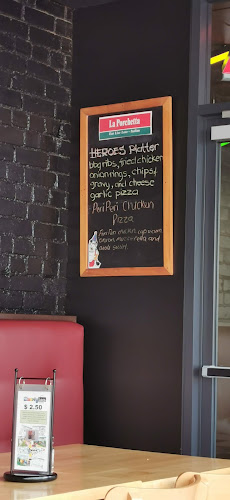 La Porchetta
HEROES Platter
bbq ribs, fried chicken
onion rings, chips &
gravy, and cheese
garlic pizza
Peri Peri Chicken
Pizza
Peri Peri chicken, capsicum
onion, mozzarella and
$ 2.50